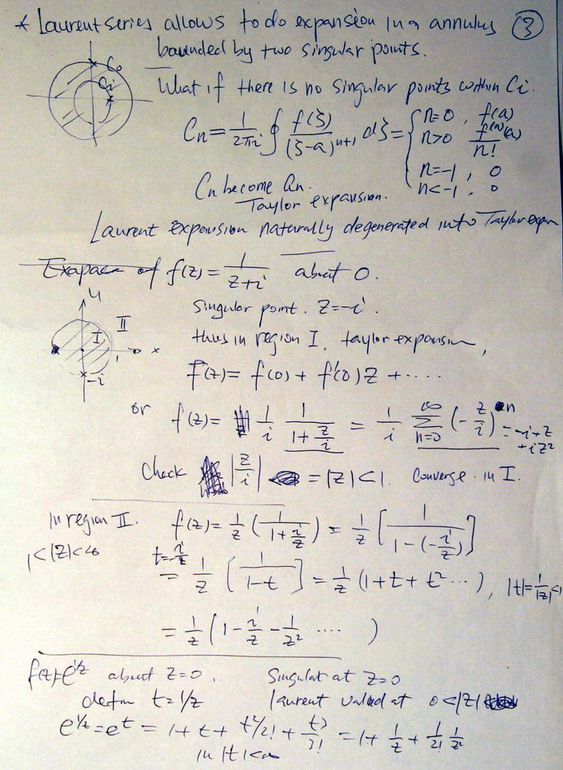 * Laurent series allows to do expansion in a annulus ③
bounded by two singular points.
Co
Ci
What if there is no singular points within Ci.
Cn = 1/2πi ∮ f(ξ)/(ξ-a)^(n+1) dξ = { n=0, f(a)
n>0 f^(n)(a)/n!
n=-1, 0
n<-1, 0
Cn become an.
Taylor expansion.
Laurent expansion naturally degenerated into Taylor expan
of f(z) = 1/(z+i) about 0.
Singular point. z=-i.
I II
-i
x
thus in region I, taylor expansion,
f(z) = f(0) + f'(0)z + ....
or f(z) = 1/i 1/(1+z/i) = 1/i ∞Σn=0 (-z/i)^n = -i+z
+iz²
Check |z/i| = |z|<1. Converge in I.
In region II. f(z) = 1/z (1/(1+i/z)) = 1/z [1/(1-(-i/z))]
1<|z|<∞ t=-i/z
= 1/z [1/(1-t)] = 1/z (1+t+t² ...), |t|=1/|z|<1
= 1/z (1 - i/z - 1/z² .... )
f(z)=e^(1/z) about z=0. Singular at z=0
t=1/z laurent valued at 0<|z|
e^(1/z) = e^t = 1+t+ t²/2! + t³/3! = 1+ 1/z + 1/2! 1/z²
in |t|<∞